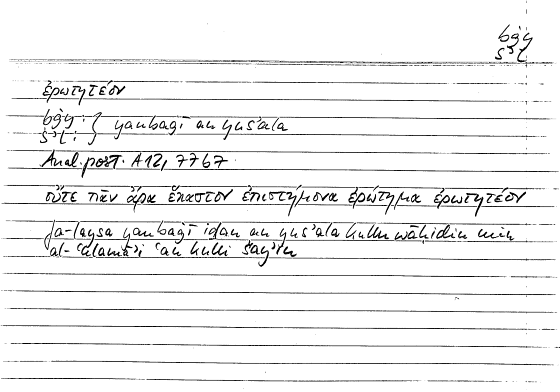 bġy
s'l
ἐρωτητέον
bġy : } yanbaġī an yus'ala
s'l : }
Anal. post. A 12, 77b7
οὔτε πᾶν ἄρα ἕκαστον ἐπιστήμονα ἐρώτημα ἐρωτητέον
fa-laysa yanbaġī iḏan an yus'ala kullu wāḥidin min
al-ʿulamāʾi ʿan kulli šayʾin